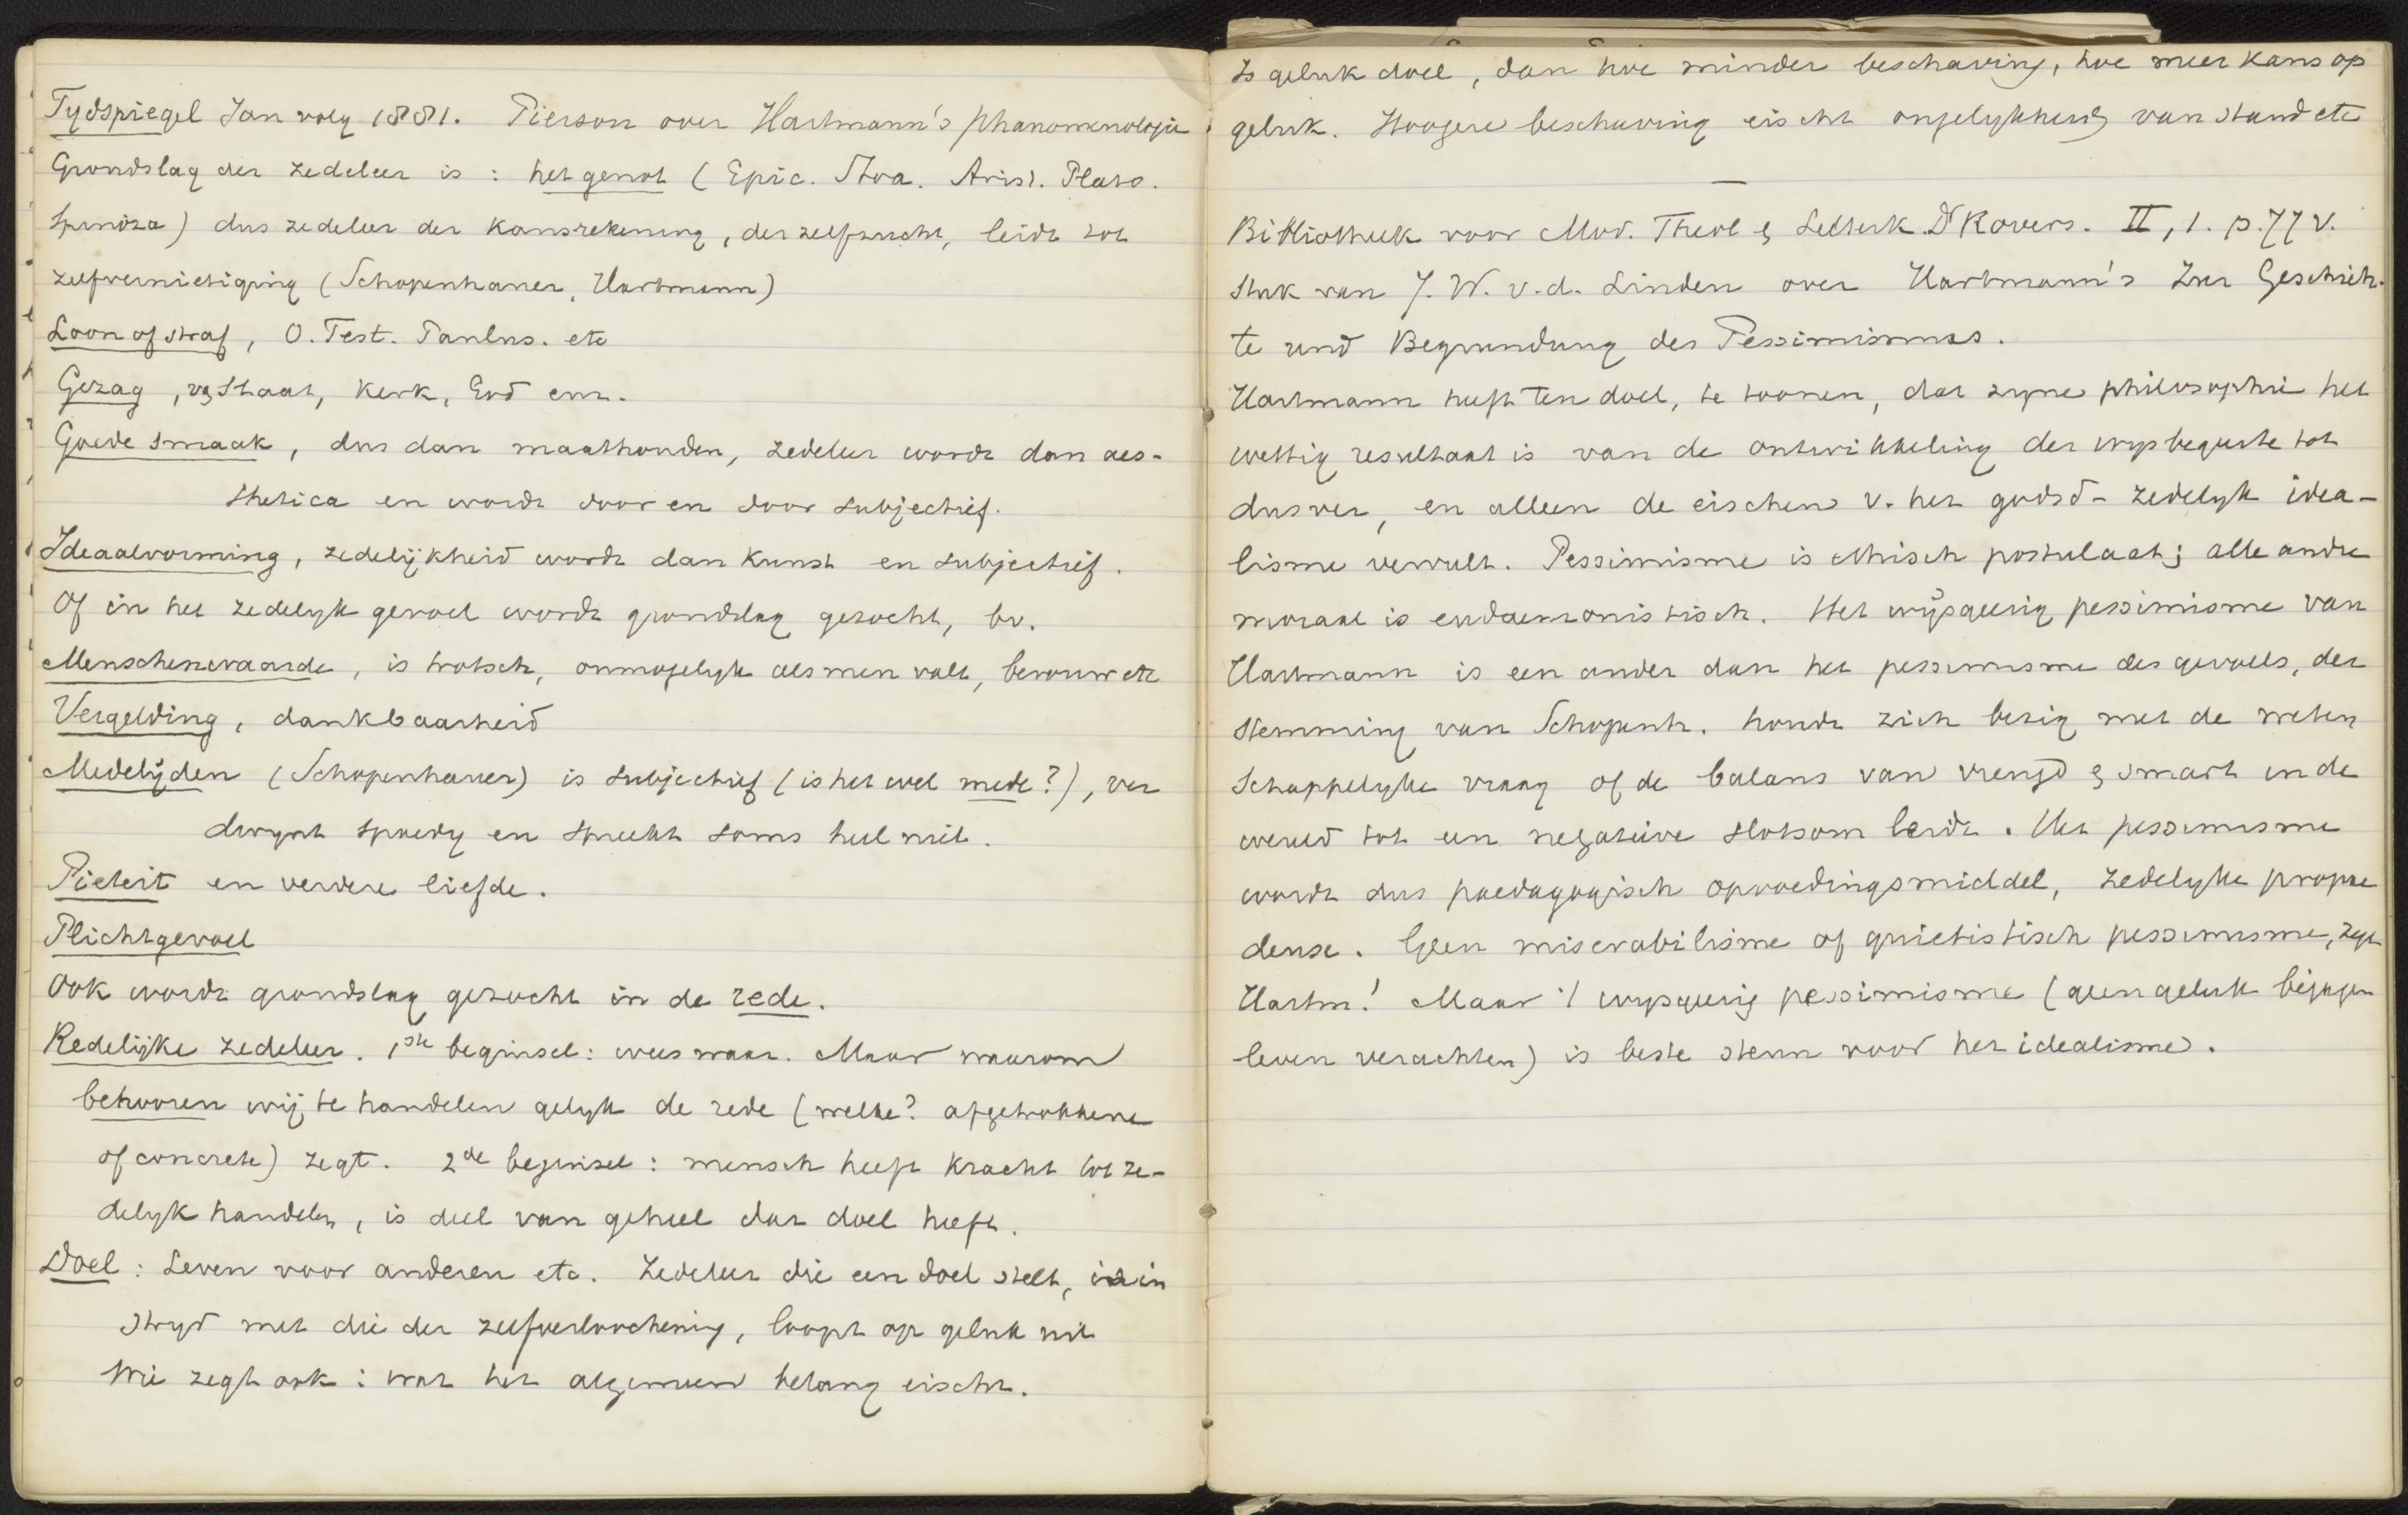 Tydspiegel Jan volg 1881. Pierson over Hartmann's phanomenologie
Grondslag der zedeleer is : het genot ( Epic. Stoa. Arist. Plato.
Spinoza ) dus zedeleer der kansrekening , der zelfzucht, leidt tot
zelfvernietiging ( Schopenhauer, Hartmann )
Loon of straf , O. Test. Paulus. etc
Gezag , v Staat, Kerk, God enz.
Goede smaak , dus dan maathouden, zedeleer wordt dan aes-
thetica en wordt door en door subjectief.
Ideaalvorming , zedelijkheid wordt dan kunst en subjectief .
Of in het zedelyk gevoel wordt grondslag gezocht, bv.
Menschenwaarde , is trotsch, onmogelyk als men valt, berouw etc
Vergelding , dankbaarheid
Medelijden ( Schopenhauer ) is subjectief ( is het wel mede ? ) , ver
dwynt spoedig en spreekt soms heel niet .
Pieteit en verdere liefde .
Plichtgevoel
Ook wordt grondslag gezocht in de rede .
Redelijke zedeleer . 1ste beginsel : wees waar . Maar waarom
behooren wij te handelen gelyk de rede ( welke ? afgetrokkene
of concrete ) zegt . 2de beginsel : mensch heeft kracht tot ze-
delyk handelen , is deel van geheel dat doel heeft .
Doel : Leven voor anderen etc. Zedeleer die een doel stelt, is in
stryd met die der zelfverloochening , loopt op geluk uit
Wie zegt ook : wat het algemeen belang eischt .
Is geluk doel , dan hoe minder beschaving , hoe meer kans op
geluk . Hoogere beschaving eischt ongelykheid van stand etc
—
Bibliotheek voor Mod. Theol & Letterk. Dr Rovers . II , 1 . p. 77 v.
Stuk van J. W. v. d. Linden over Hartmann's Zur Geschich-
te und Begrundung des Pessimismus .
Hartmann heeft ten doel, te toonen , dat zyne philosophie het
wettig resultaat is van de ontwikkeling der wysbegeerte tot
dusver , en alleen de eischen v. het godsd- zedelyk idea-
lisme vervult . Pessimisme is ethisch postulaat ; alle andre
moraal is eudaemonistisch . Het wijsgeerig pessimisme van
Hartmann is een ander dan het pessimisme des gevoels, der
stemming van Schopenh . houdt zich bezig met de weten
schappelyke vraag of de balans van vreugd & smart in de
wereld tot een negatieve slotsom leidt . Het pessimisme
wordt dus paedagogisch opvoedingsmiddel, zedelyke propae
deuse . Geen miserabilisme of quietistisch pessimisme , zegt
Hartm ! Maar 't wysgeerig pessimisme ( geen geluk bejagen
leven verachten ) is beste steun voor het idealisme .